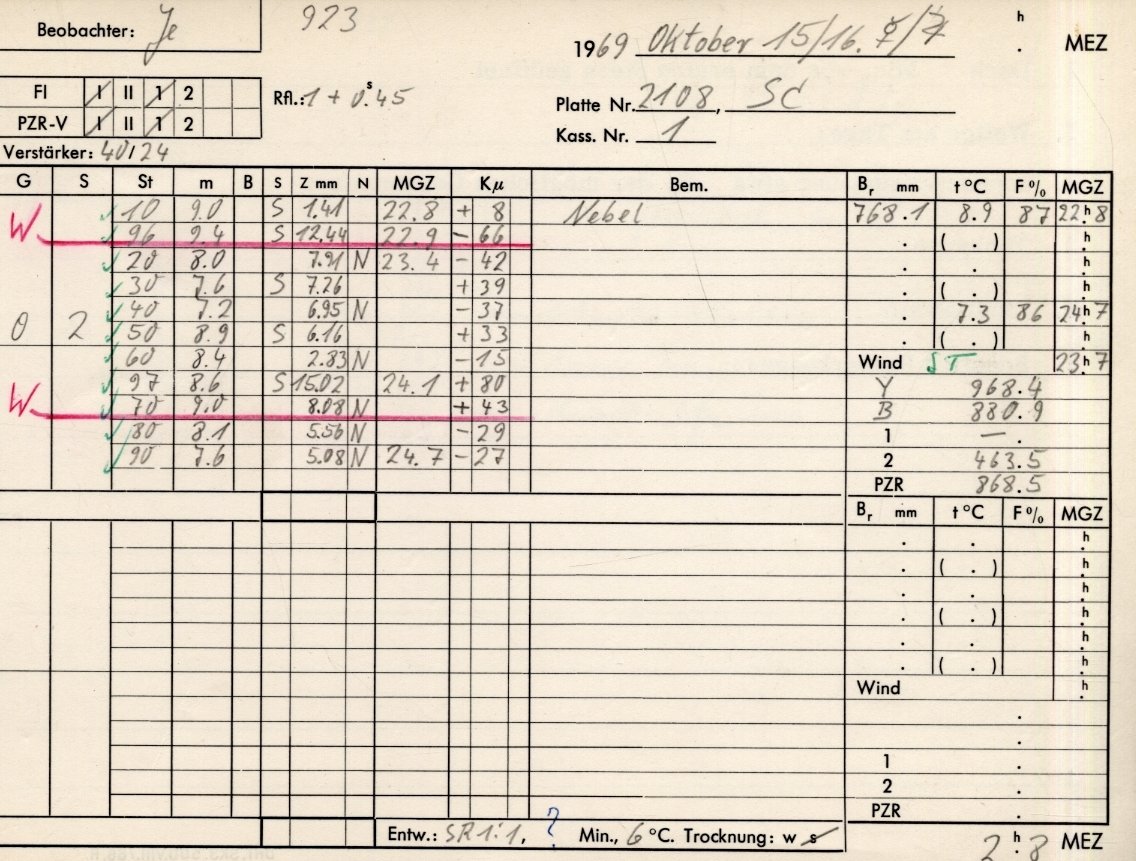 Beobachter: Je 923 h
1969 Oktober 15/16. ☿/♃ . MEZ
FI I II 1 2 Rfl.: 1 + 0.ˢ45 Platte Nr. 2108, SC
PZR-V I II 1 2 Kass. Nr. 1
Verstärker: 40/24
G S St m B S Z mm N MGZ Kμ Bem. Bᵣ mm t °C F % MGZ
W 10 9.0 S 1.41 22.8 + 8 Nebel 768.1 8.9 87 22ʰ.8
96 9.4 S 12.44 22.9 - 66 . ( . ) h.
20 8.0 7.91 N 23.4 - 42 . . h.
30 7.6 S 7.26 + 39 . ( . ) h.
40 7.2 6.95 N - 37 . 7.3 86 24ʰ.7
0 2 50 8.9 S 6.16 + 33 . ( . ) h.
60 8.4 2.83 N - 15 Wind ST 23ʰ.7
97 8.6 S 15.02 24.1 + 80 Y 968.4
W 70 9.0 8.08 N + 43 B 880.9
80 8.1 5.56 N - 29 1 — .
90 7.6 5.08 N 24.7 - 27 2 463.5
PZR 868.5
Bᵣ mm t °C F % MGZ
. . h.
. ( . ) h.
. . h.
. ( . ) h.
. . h.
. ( . ) h.
Wind h.
.
.
1 .
2 .
PZR .
Entw.: SR 1:1, ? Min., 6 °C. Trocknung: w s
2ʰ.8 MEZ